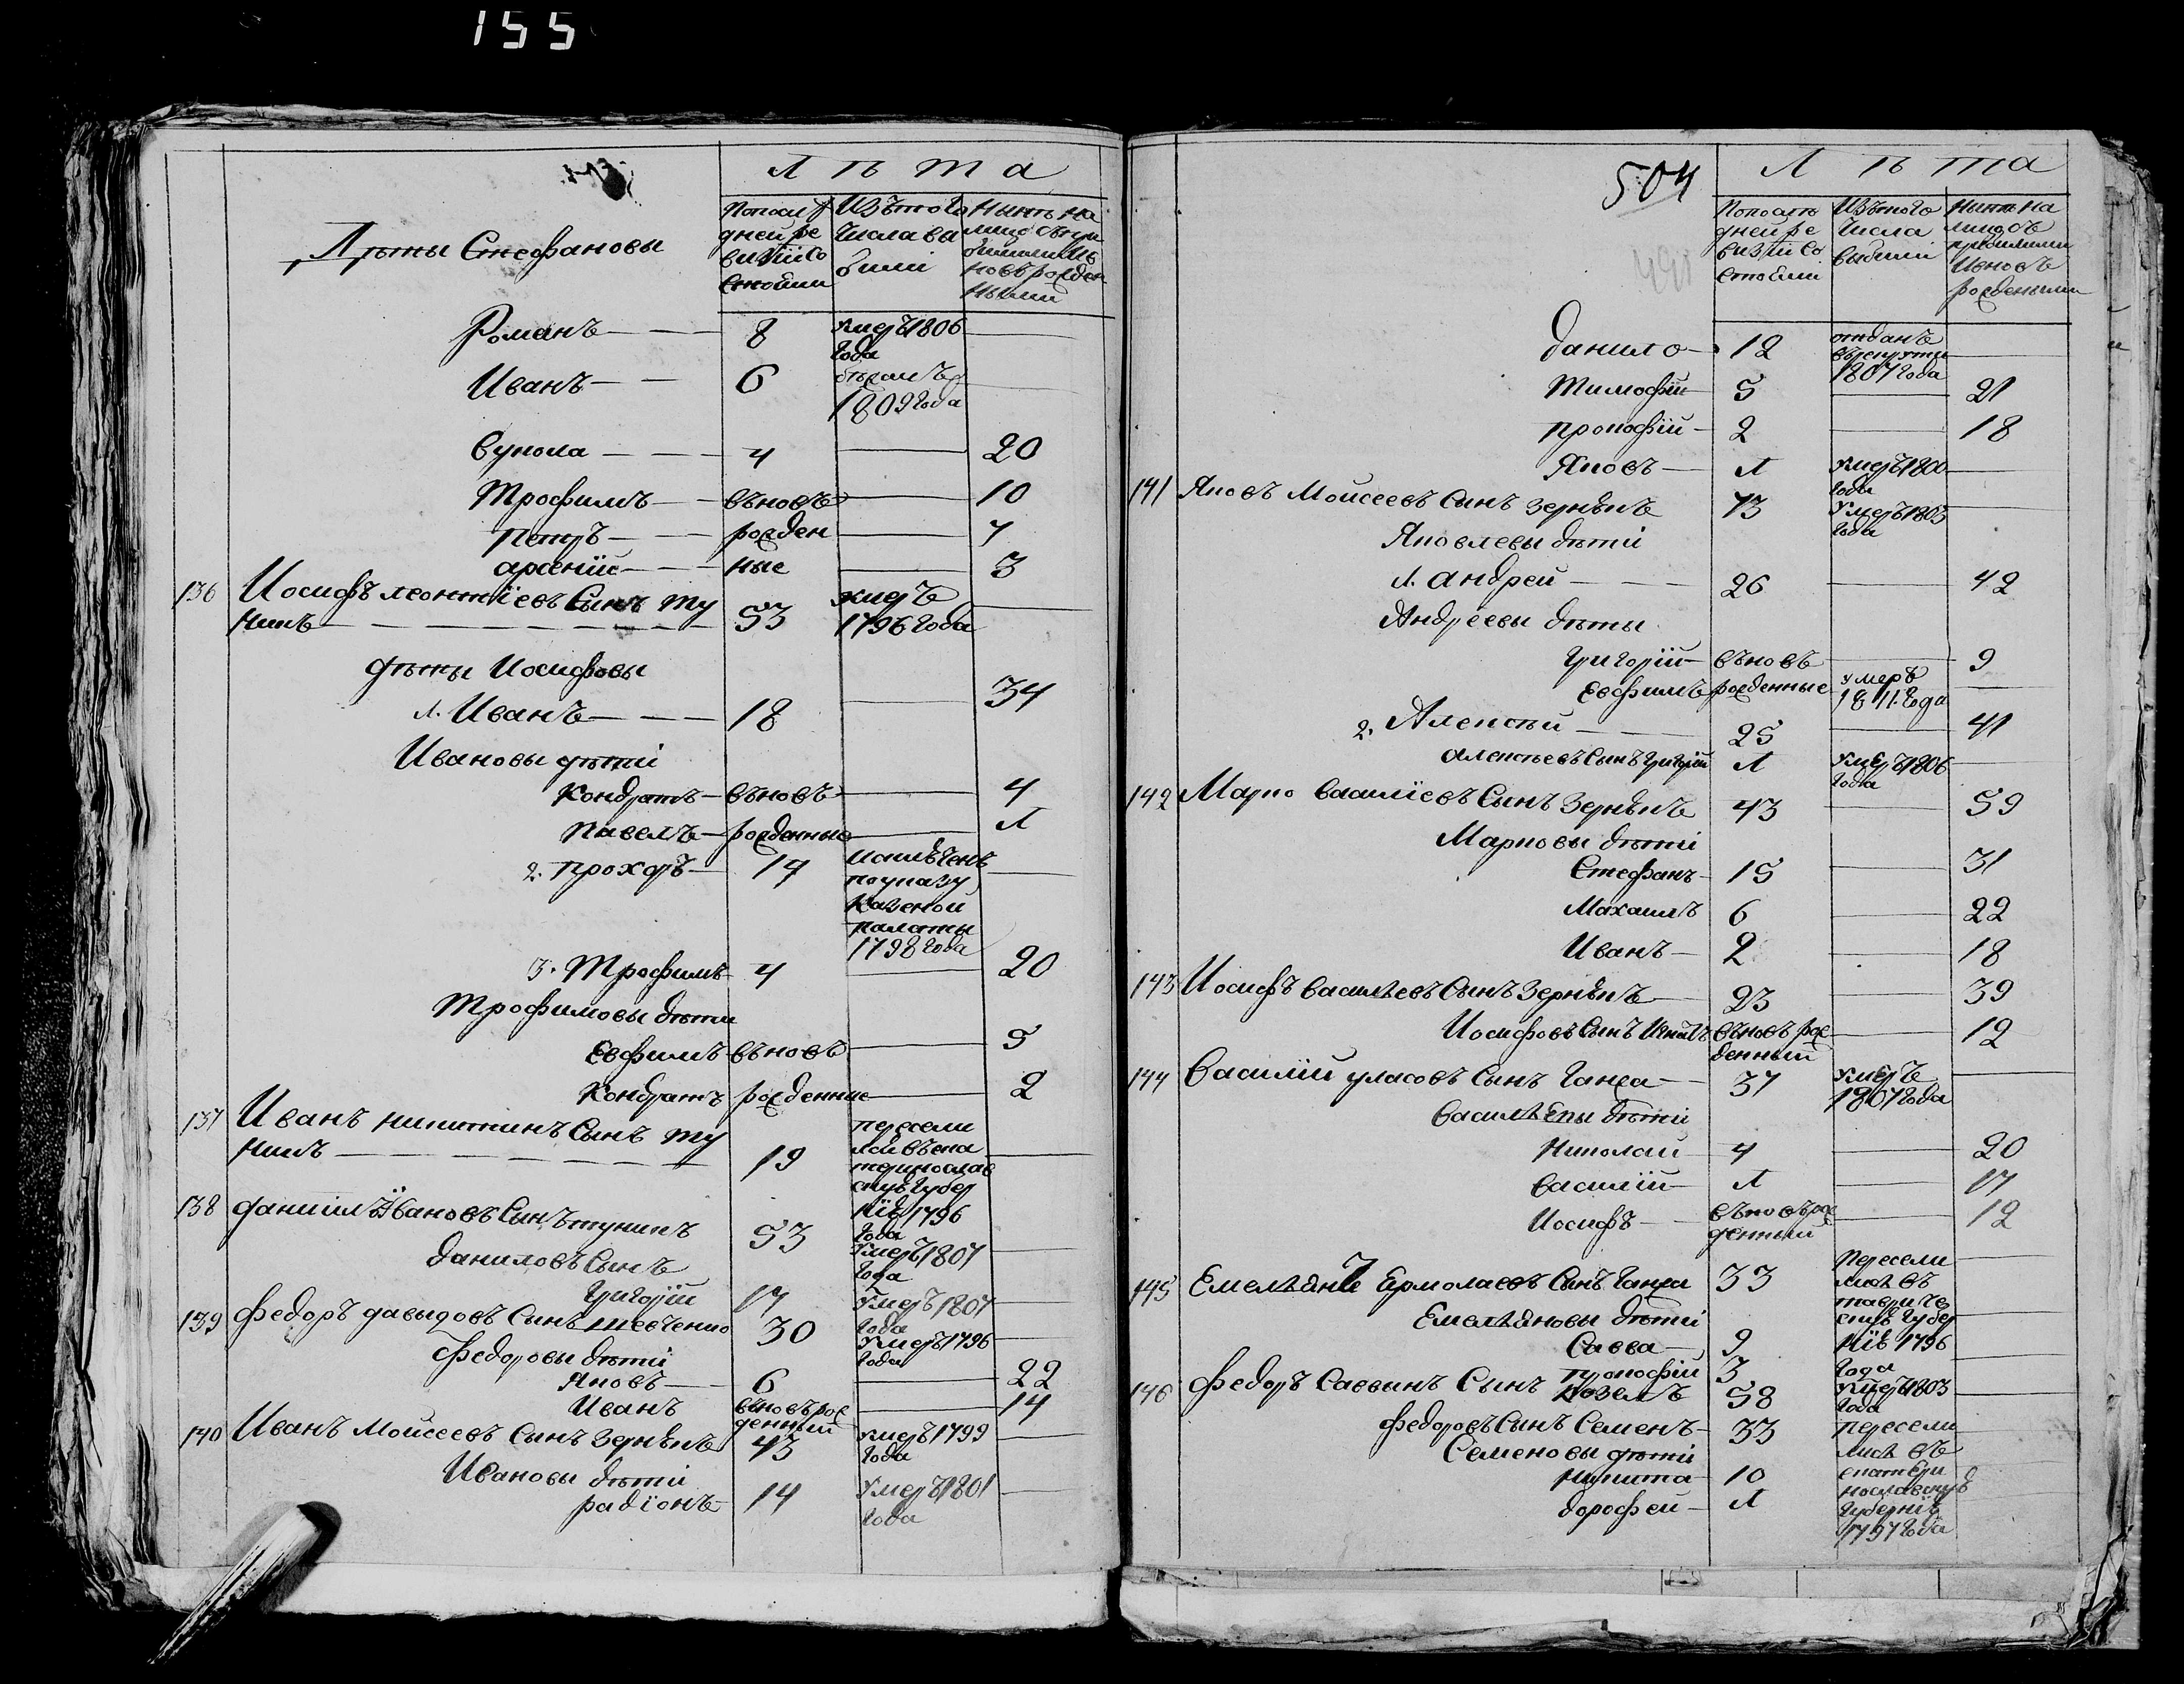 155
Лѣта
Попослѣ Изътого Нынѣ на
дней ре числа вы лицо съ при
визіи со были былыми и в
стояли новъ рожден
ными
Дѣты Стефановы
Романъ 8 умеръ 1806
года
Иванъ 6 бѣжалъ
1809 года
Вукола 4 20
Трофимъ въновь 10
Петръ рожден 7
арсеній ные 3
136 Иосифъ леонтіевъ Сынъ ту
никъ 53 умеръ
1796 года
дѣты Иосифовы
1. Иванъ 18 34
Ивановы дѣти
Кондратъ въновь 4
Павелъ рожденные 1
2. Прохоръ 14
по указу
Казеной
палаты
1798 года
3. Трофимъ 4 20
Трофимовы дѣти
Евфимъ въновь 5
Кондратъ рожденние 2
137 Иванъ никитинъ Сынъ ту
никъ 19 пересели
въ ека
теринослав
скую губер
нію 1796
года
138 даниилъ Ивановъ Сынъ туникъ 53 умеръ 1807
года
даниловъ Сынъ
григорій 17 умеръ 1807
года
139 Федоръ давыдовъ Сынъ шевченко 30 умеръ 1796
года
Федоровы дѣти
Яковъ 6 22
Иванъ въновь рож 14
денный
140 Иванъ Моисеевъ Сынъ зернѣкъ 43 умеръ 1799
года
Ивановы дѣти
радіонъ 14 умеръ 1801
года
504
Лѣта
Попослѣ Изътого Нынѣ на
дней ре числа лицо съ
визіи со выбыли прибылыми
стояли и вновь
рождеными
данило 12 отданъ
въ рекруты
1807 года
Тимофій 5 21
прокофій 2 18
Яковъ 1 умеръ 1800
года
141 Яковъ Моисеевъ Сынъ зернѣкъ 73 умеръ 1803
года
Яковлевы дѣти
1. андрей 26 42
Андреевы дѣты
григорій въновь 9
Евфимъ рожденные умеръ
1811. года
2. Алексѣй 25 41
алексѣевъ Сынъ григорій 1 умеръ 1806
года
142 Марко василіевъ Сынъ зернѣкъ 43 59
Марковы дѣти
Стефанъ 15 31
Михаилъ 6 22
Иванъ 2 18
143 Иосифъ василѣевъ Сынъ зернѣкъ 23 39
Иосифовъ Сынъ въновь рож 12
денный
144 Василій уласовъ Сынъ ганжа 37 умеръ
1807 года
василѣевы дѣти
Николай 4 20
василій 1 17
Иосифъ въновь рож 12
денный
145 Емелѣянъ Ермолаевъ Сынъ ганжа 33 пересели
лись въ
тавриче
скую губер
нію 1796
года
Емелѣяновы дѣти
Савва 9
прокофій 3
146 Федоръ Саввинъ Сынъ козелъ 58 умеръ 1803
года
федоровъ Сынъ Семенъ 33 пересели
лись въ
екатери
нославскую
губернію
1797 года
Семеновы дѣти
никита 10
дорофей 1